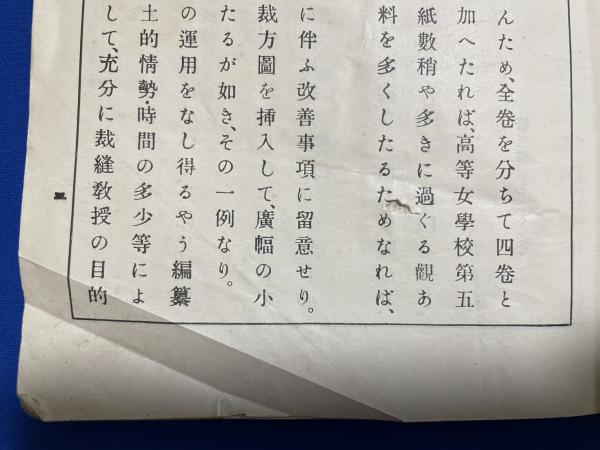 んため、全卷を分ちて四卷と
加へたれば、高等女學校第五
紙數稍や多きに過ぐる觀あ
料を多くしたるためなれば、
に伴ふ改善事項に留意せり。
裁方圖を挿入して、廣幅の小
たるが如き、その一例なり。
の運用をなし得るやう編纂
土的情勢・時間の多少等によ
して、充分に裁縫敎授の目的
三